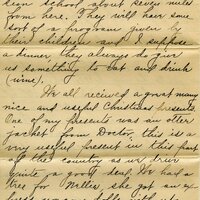 sion school about seven miles
from here. They will have some
sort of a program given by
their children and I suppose
a dinner, they always do give
us something to eat and drink
(wine).
We all recieved a great many
nice and useful Christmas presents
One of my presents was an otter
jacket from Doctor, this is a
very useful present in this part
of the country as we drive
quite a good deal. We had a
tree for Nellie, she got an ex-